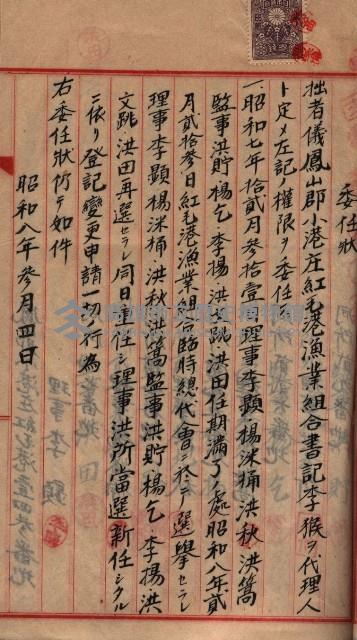 委任状
拙者儀鳳山郡小港庄紅毛港漁業組合書記李猴ヲ代理人
ト定メ左記ノ權限ヲ委任
一、昭和七年拾貳月參拾壹 理事李顕楊洣桶洪秋洪篙
監事洪貯楊乞李揚洪文跳洪田任期滿了ノ處昭和八年貳
月貳拾參日紅毛港漁業組合臨時總代會ニ於テ選擧セラレ
理事李顕楊洣桶洪秋洪篙監事洪貯楊乞李揚洪
文跳洪田再選セラレ同日 任シ理事洪所當選新任シタル
ニ依リ登記變更申請一切ノ行為
右委任狀仍テ如件
昭和八年參月四日